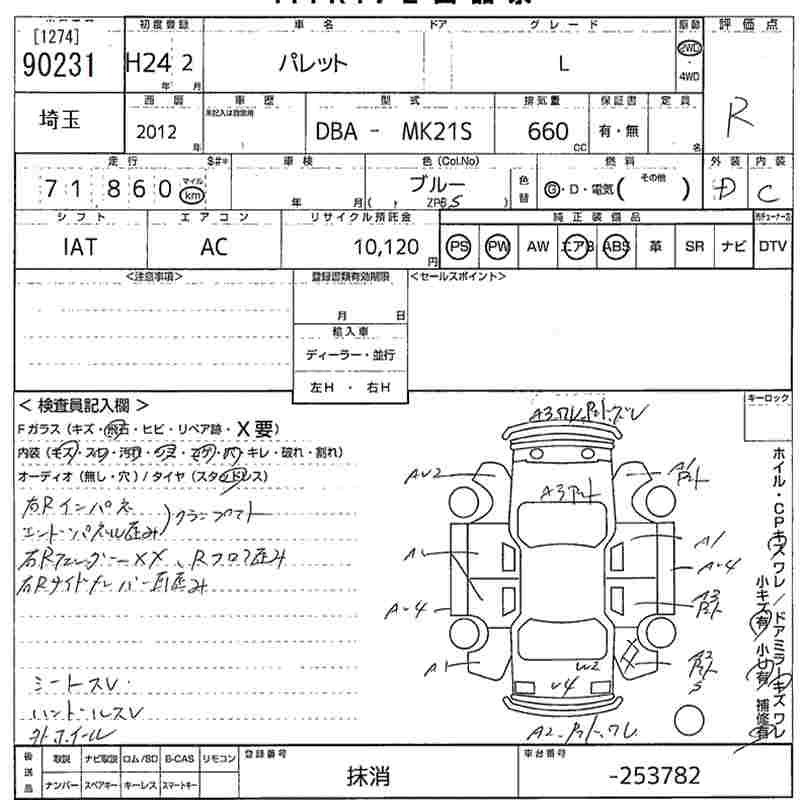 [1274]
90231
初度登録
車名
ドア
グレード
駆動
評価点
H24 2
年
月
パレット
L
2WD
・
4WD
R
埼玉
西暦
車歴
型式
排気量
保証書
定員
未記入は自家用
2012
年
DBA - MK21S
660
CC
有・無
名
走行
$#*
車検
色(Col.No)
燃料
外装
内装
71 860
マイル
km
年
月
ブルー
( ZPB 5 )
色替
G・D・電気( その他 )
D
C
シフト
エアコン
リサイクル預託金
純正装備品
IAT
AC
10,120
円
PS PW AW エアB ABS 革 SR ナビ DTV
<注意事項>
登録書類有効期限
<セールスポイント>
月 日
輸入車
ディーラー・並行
左H ・ 右H
< 検査員記入欄 >
キーロック
Fガラス(キズ・飛石・ヒビ・リペア跡・X要)
オーディオ(無し・穴)/タイヤ(スタッドレス)
右Rインパネ
エンドパネル歪み
右Rフェンダー XX、Rフロア歪み
シートスレ
ハンドルスレ
外ホイール
A1
A-4
A1
A1
A-4
W2
ホイル・CPキズ ワレ/ドアミラーキズ ワレ
小キズ有 小凹有 補修有
後送品
取説 ナビ取説 ロム/SD B-CAS リモコン
ナンバー スペアキー キーレス スマートキー
登録番号
抹消
車台番号
-253782